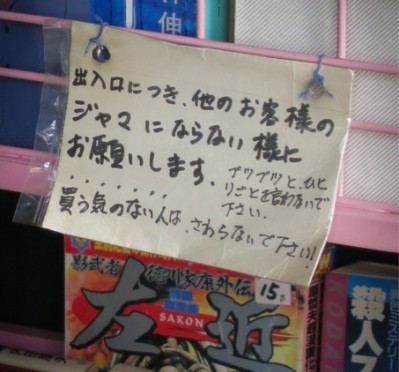 伸
出入口につき、他のお客様の
ジャマにならない様に
お願いします、
ブツブツと、ひと
りごとを言わないで
下さい.
.......
買う気のない人は、さわらないで下さい!
影武者 徳川家康外伝
左近
SAKON
15
殺人
KODA